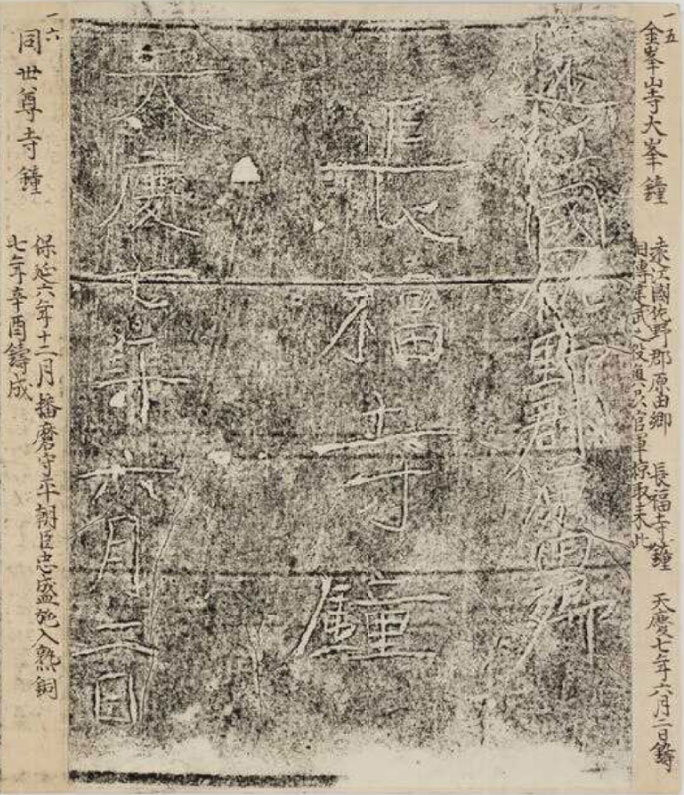 一五
金峯山寺大峯鐘
遠江國佐野郡原田郷 長福寺鐘 天慶七年六月二日鑄
相傳建武之役 官軍掠取来此
遠江國佐野郡原田郷
長福寺鐘
天慶七年六月二日
一六
同世尊寺鐘
保延六年十二月播磨守平朝臣忠盛施入熟銅
七年辛酉鑄成